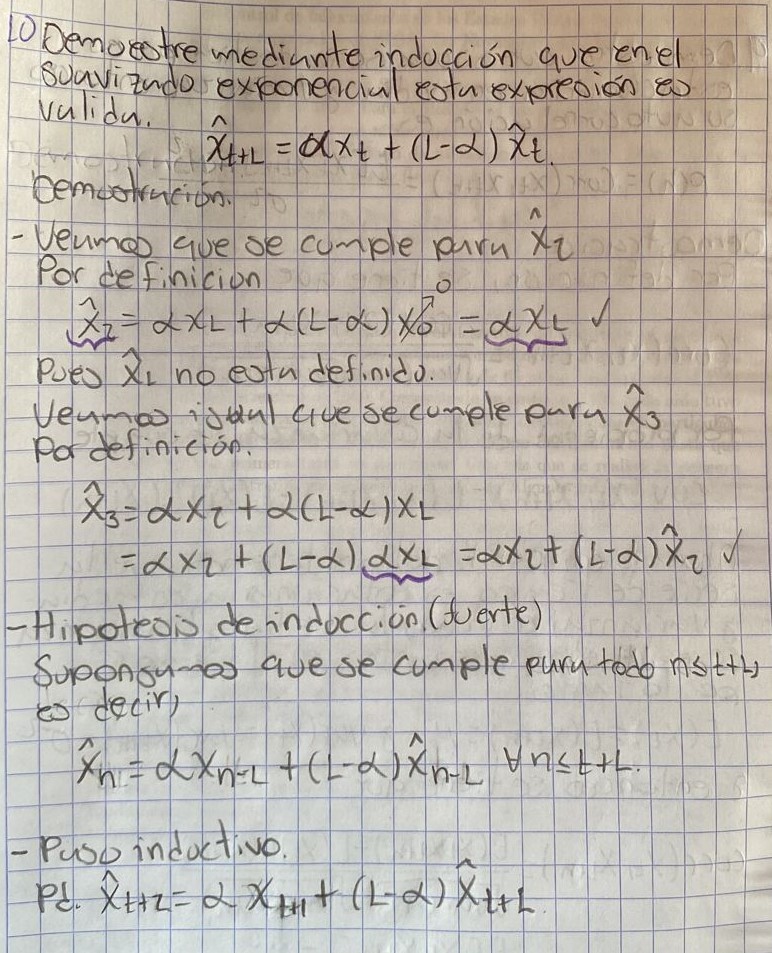 10) Demuestre mediante inducción que en el
suavizado exponencial esta expresión es
valida.
x̂t+1 = αxt + (1-α) x̂t.
Demostración.
- Veamos que se cumple para x̂2
Por definicion
x̂2 = αx1 + α(1-α) x0 → 0 = αx1 ✓
Pues x̂1 no esta definido.
Veamos igual que se cumple para x̂3
Por definición.
x̂3 = αx2 + α(1-α)x1
= αx2 + (1-α) αx1 = αx2 + (1-α) x̂2 ✓
- Hipotesis de inducción (fuerte)
Supongamos que se cumple para todo n≤t+1,
es decir,
x̂n = αxn-1 + (1-α) x̂n-1 ∀n≤t+1.
- Paso inductivo.
Pd. x̂t+2 = αxt+1 + (1-α) x̂t+1